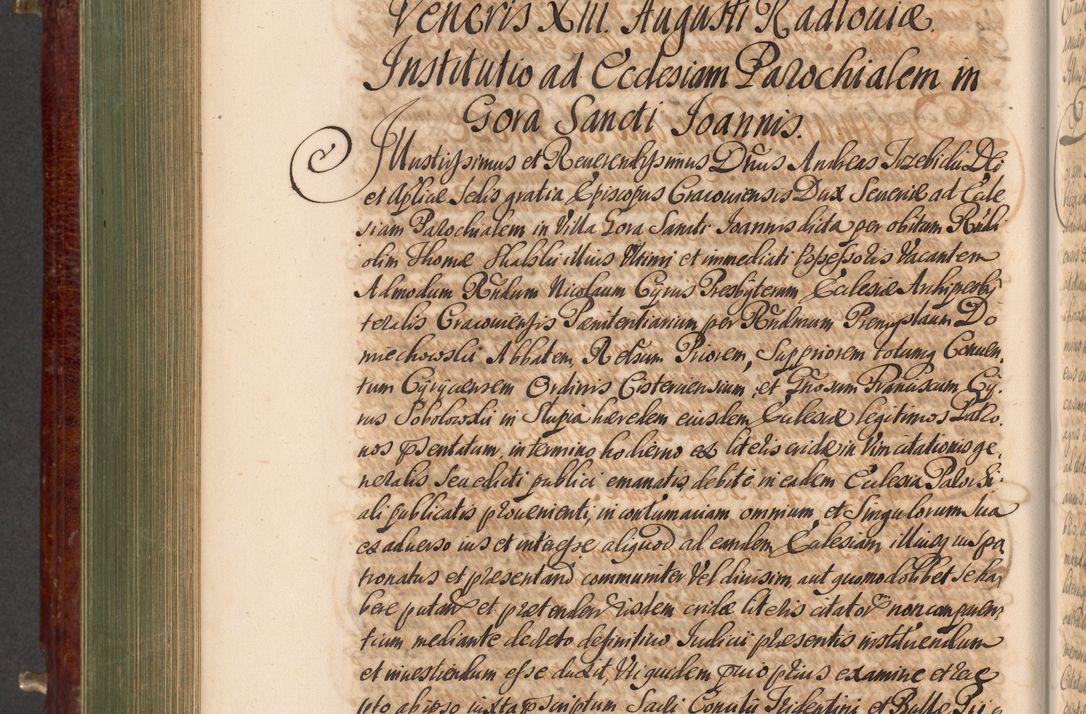 Veneris XIII. Augusti Radloviæ.
Institutio ad Ecclesiam Parochialem in
Gora Sancti Joannis.
Illustrissimus et Reverendissimus Dnus Andreas Trzebicki Dei
et Aplicæ Sedis gratia Episcopus Cracoviensis Dux Severiæ ad Eccle
siam Parochialem in Villa Gora Sancti Joannis dicta per obitum Rndi
olim Thomæ Skalski illius Ultimi et immediati Possessoris Vacantem
Admodum Rndum Nicolaum Cyrus Presbyterum Ecclesiæ Archipresby
teralis Cracoviensis Pænitentiarium per Rndmum Premyslaum Do
miechowski Abbatem, Relsum Priorem, Suppriorem totumq Conven
tum Cyryciensem Ordinis Cisterciensium, et Gnosum Franciscum Cy
rus Sobolowski in Slupia hæredem eiusdem Ecclesiæ legitimos Patro
nos psentatum, in termino hodierno ex literis cridæ in Vim citationis ge
neralis Seu edicti publici emanatis, debite in eadem Ecclesia Parochi
ali publicatis provenienti, in contumaciam omnium et Singulorum Sua
ex adverso ius et interesse aliquod ad eandem Ecclesiam illiusq ius pa
tronatus et præsentand communiter Vel divisim, aut quomodolibet Se ha
bere putan et prætenden iisdem cridæ literis citator non comparen
tium mediante decreto definitivo Iudicii præsentis instituendum
et investiendum esse duxit, Uti quidem prævio prius examine et rece
pto ab ipso iuxta præscriptum Sacri Concilii Tridentini et Bullæ Pii